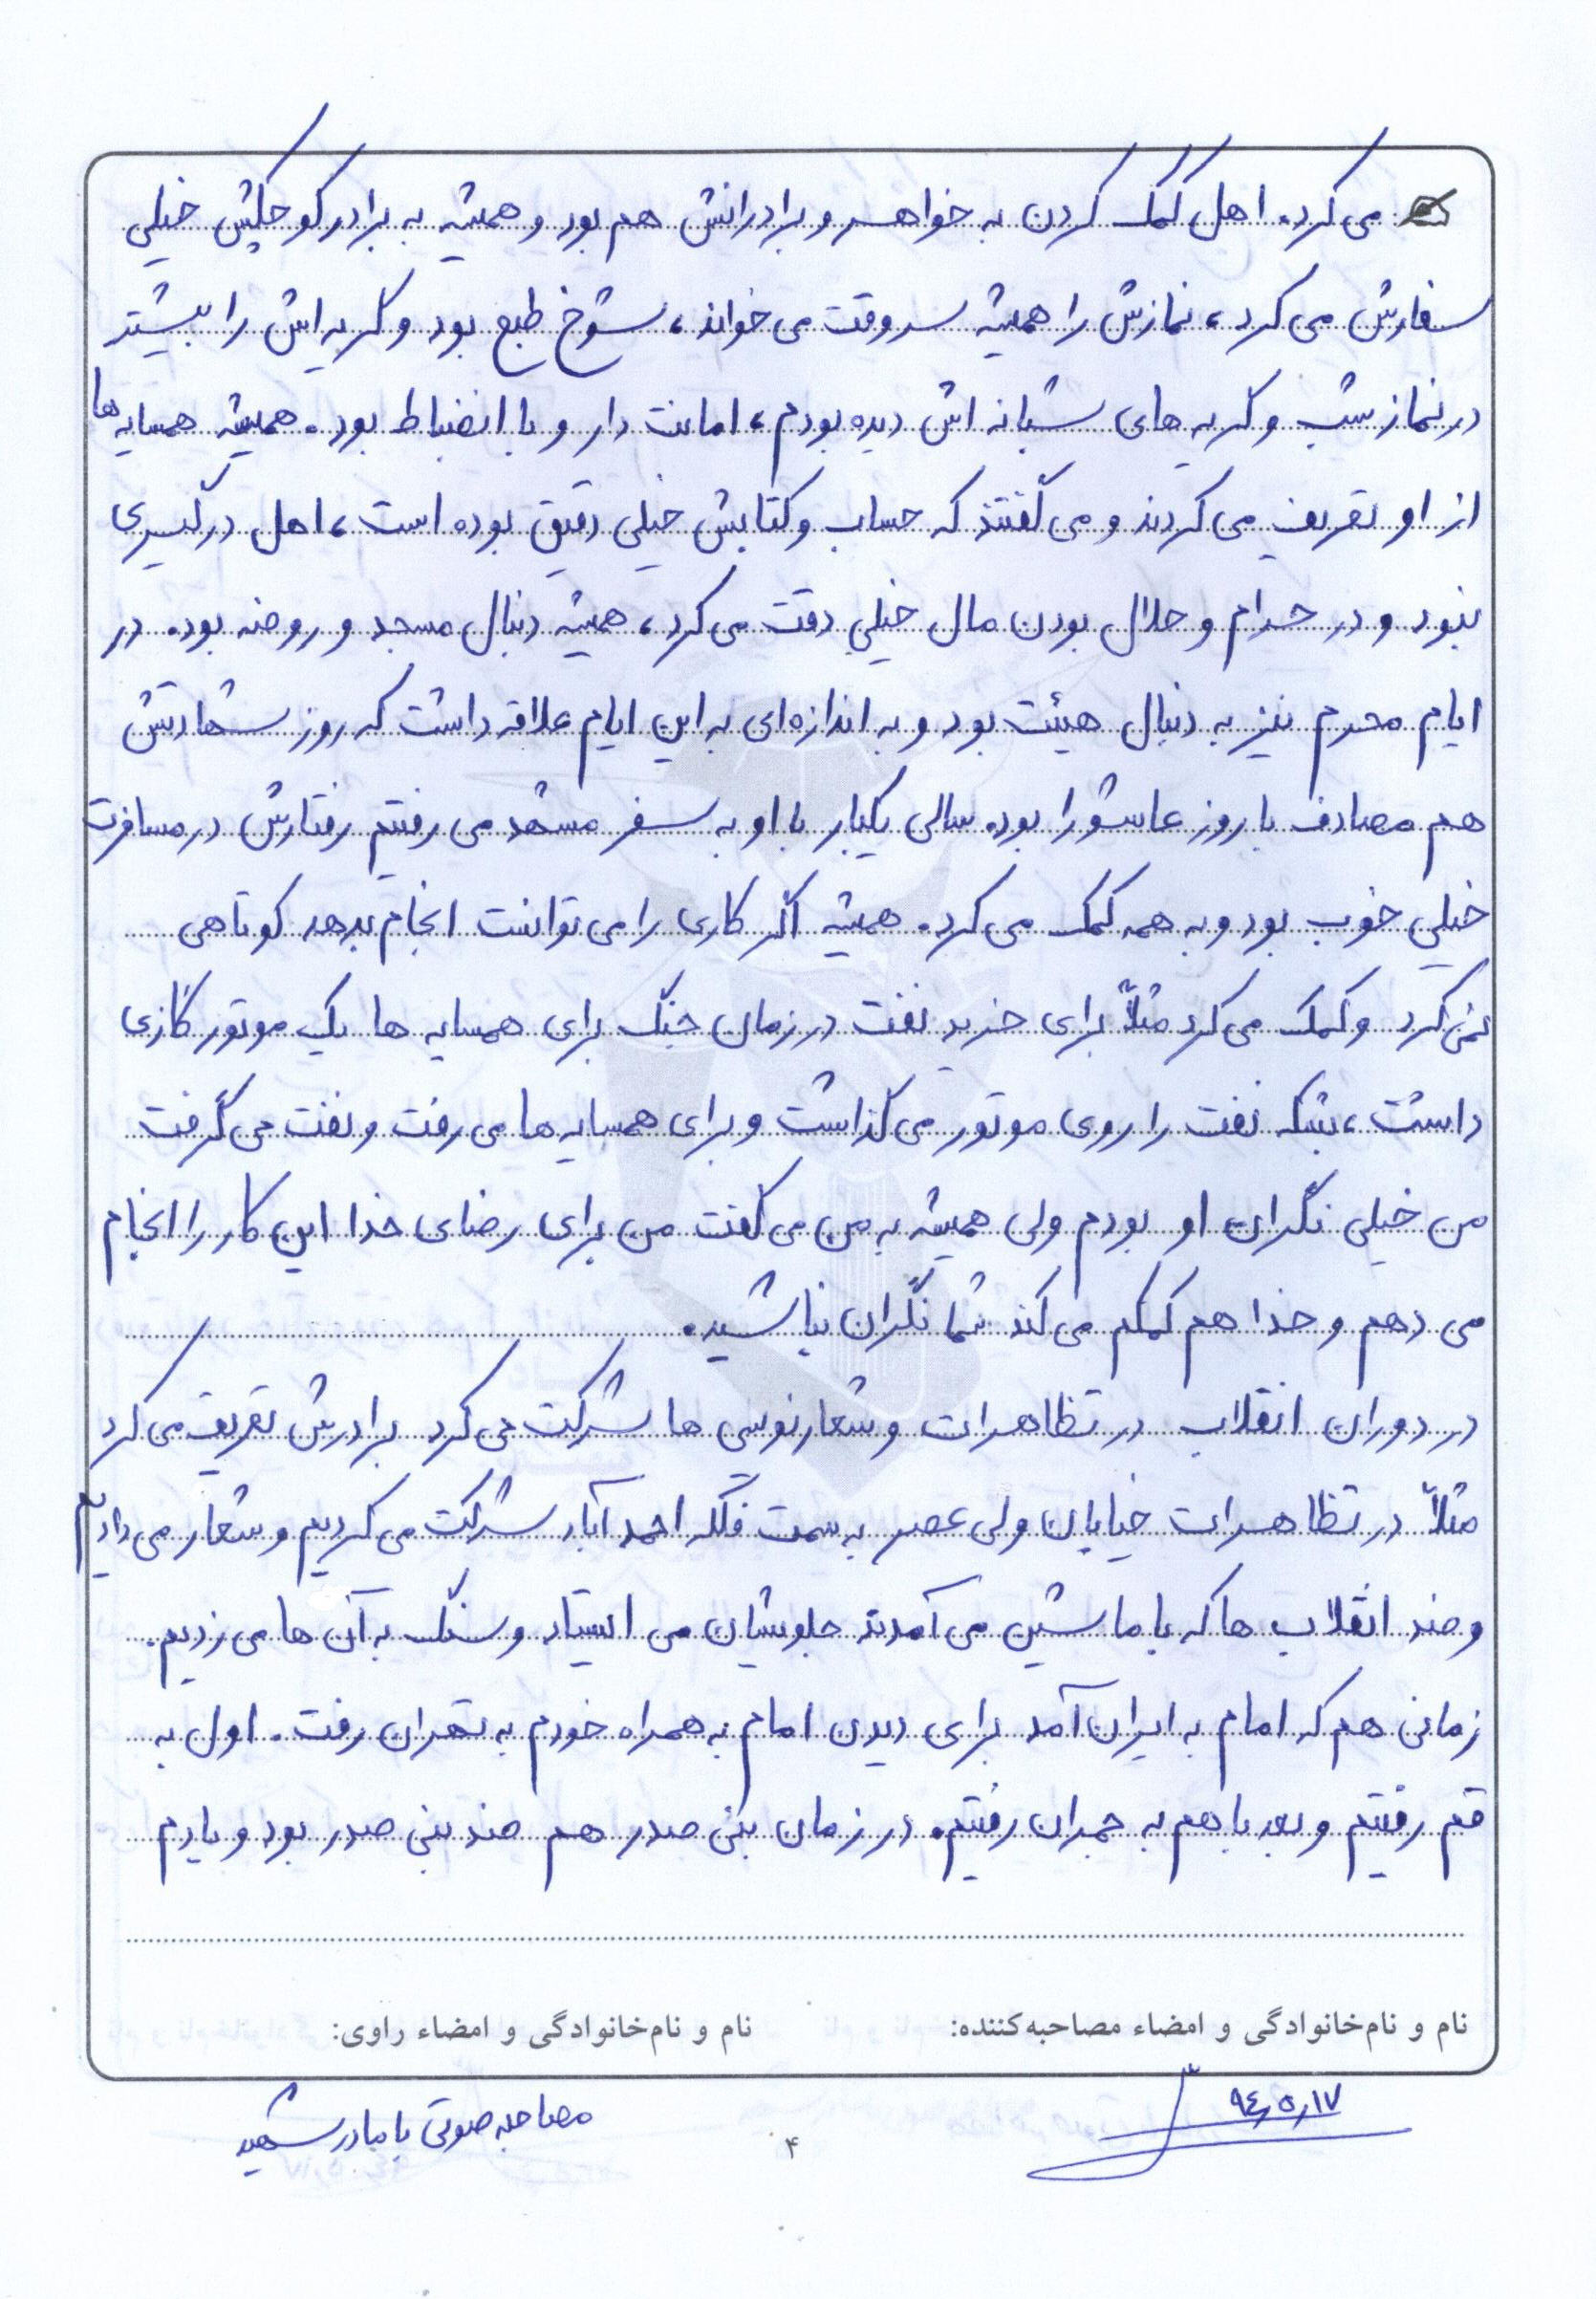 می‌کرد. اهل کمک کردن به خواهر و برادرانش هم بود و همیشه به برادر کوچکش خیلی
سفارش می‌کرد، نمازش را همیشه سر وقت می‌خواند، شوخ طبع بود و گریه‌اش را بیشتر
در نماز شب و گریه‌های شبانه‌اش دیده بودم، امانت دار و با انضباط بود. همیشه همسایه‌ها
از او تعریف می‌کردند و می‌گفتند که حساب و کتابش خیلی دقیق بوده است، اهل درگیری
نبود و در حرام و حلال بودن مال خیلی دقت می‌کرد، همیشه دنبال مسجد و روضه بود. در
ایام محرم نیز به دنبال هیئت بود و به اندازه‌ای به این ایام علاقه داشت که روز شهادتش
هم مصادف با روز عاشورا بود. سالی یکبار با او به سفر مشهد می‌رفتیم رفتارش در مسافرت
خیلی خوب بود و به همه کمک می‌کرد. همیشه اگر کاری را می‌توانست انجام بدهد کوتاهی
نمی‌کرد و کمک می‌کرد مثلاً برای خرید نفت در زمان جنگ برای همسایه ها یک موتور گازی
داشت، بشکه نفت را روی موتور می‌گذاشت و برای همسایه‌ها می‌رفت و نفت می‌گرفت
من خیلی نگران او بودم ولی همیشه به من می‌گفت من برای رضای خدا این کار را انجام
می دهم و خدا هم کمکم می‌کند شما نگران نباشید.
در دوران انقلاب در تظاهرات و شعارنویسی ها شرکت می‌کرد برادرش تعریف می‌کرد
مثلاً در تظاهرات خیابان ولی عصر به سمت فلکه احمد آباد شرکت می‌کردیم و شعار می‌دادیم
و ضد انقلاب ها که با ماشین می‌آمدند جلوشان می ایستاد و سنگ به آن ها می‌زدیم.
زمانی هم که امام به ایران آمد برای دیدن امام به همراه خودم به تهران رفت. اول به
قم رفتیم و بعد با هم به جمران رفتیم. در زمان بنی صدر هم ضد بنی صدر بود و یادم
نام و نام‌خانوادگی و امضاء مصاحبه‌کننده:
نام و نام‌خانوادگی و امضاء راوی:
۹۴,۵,۱۷
مصاحبه صوتی با مادر شهید
۴